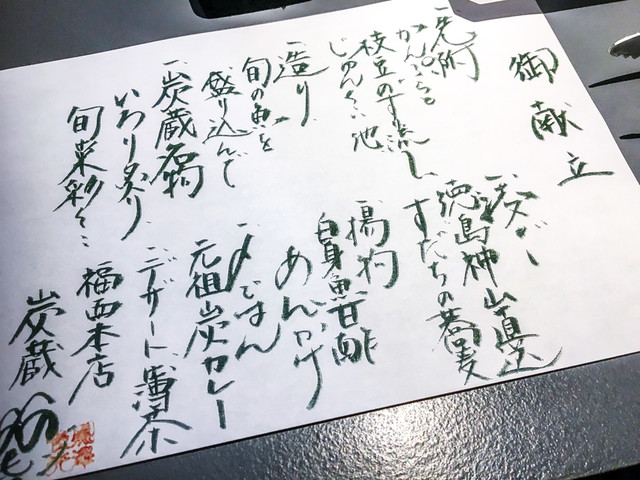 御献立
一、先附
かんぱちと
枝豆のすり流し
じゅんさい
一、造り
旬の魚を
盛り込んで
一、炭蔵名物
いろり炙り
旬菜彩々…
徳島神山直送
すだちの蕎麦
一、揚物
白身魚甘酢
あんかけ
一、〆ごはん
元祖炭カレー
一、デザート、薄茶
福西本店
炭蔵